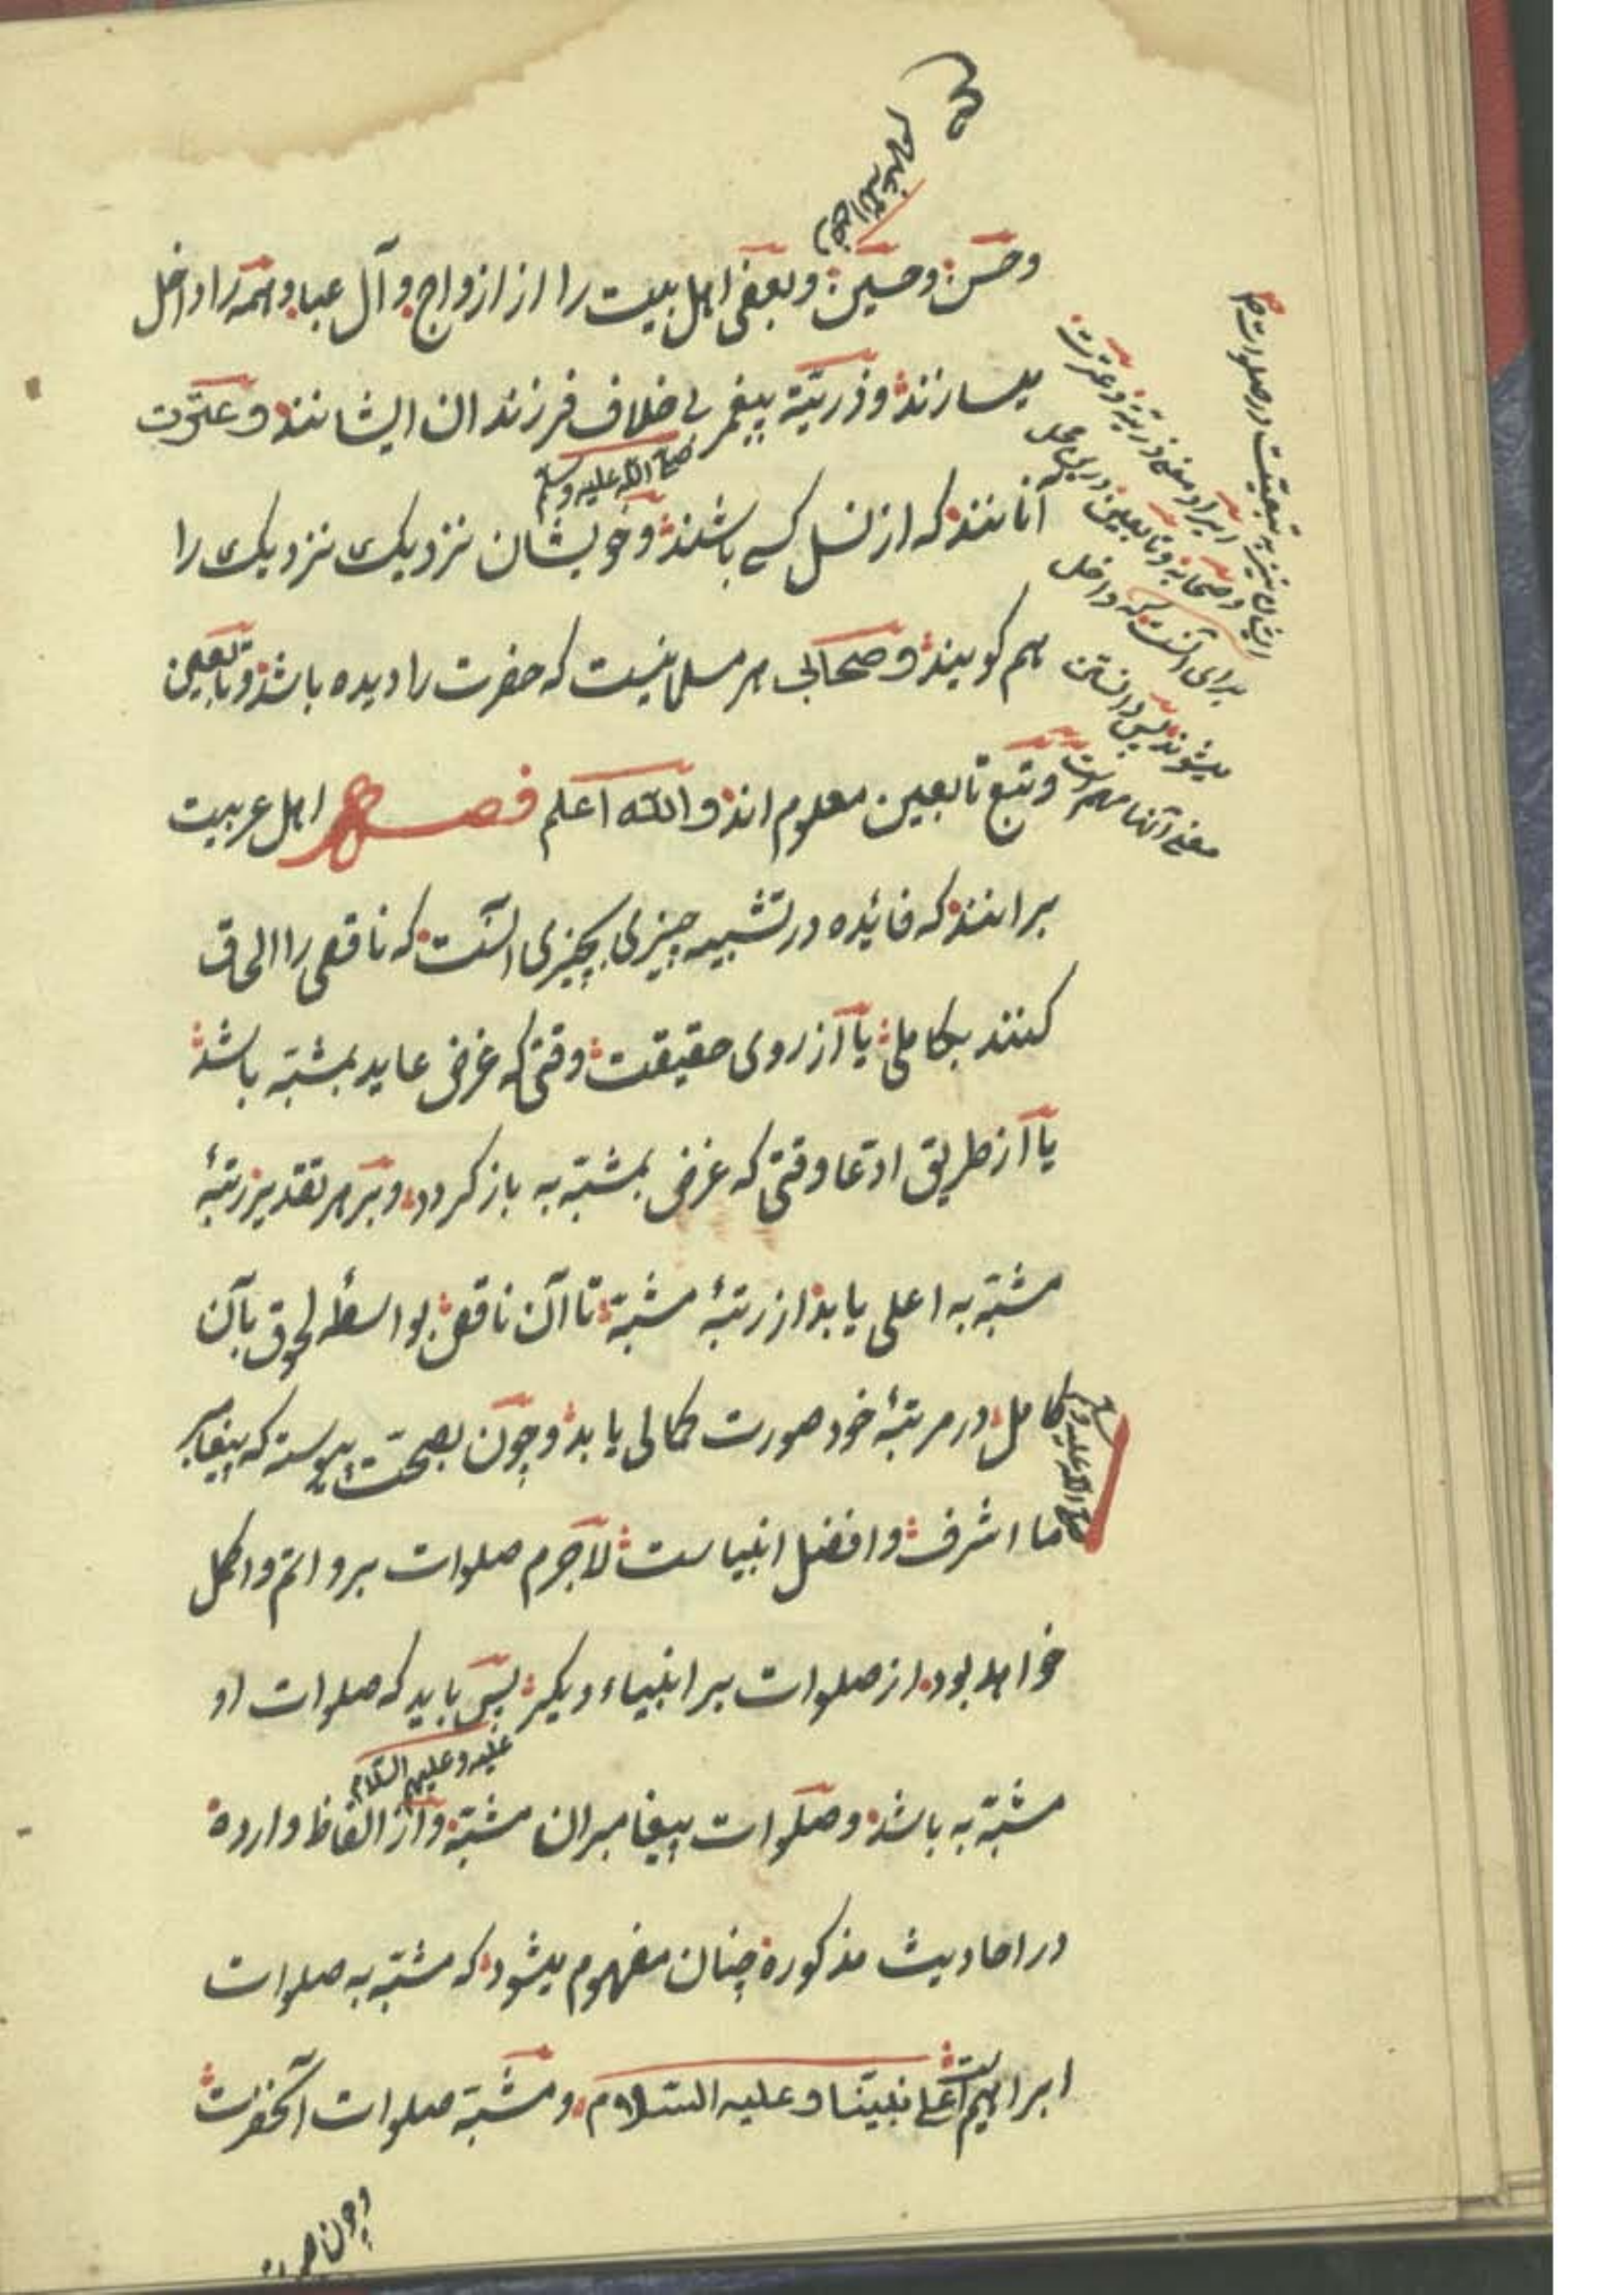 رضی الله عنهم
وحسن وحسین وبعضی اهل بیت را از ازواج و آل عبا و همه را داخل
میسازند وذریّة پیغمبر بی خلاف فرزندان ایشانند وعترت
صلی الله علیه وسلم
آنانند که از نسل کسی باشند وخویشان نزدیک نزدیک را
هم کویند وصحابی هر مسلمانیست که حضرت را دیده باشد وتابعین
وتبع تابعین معلوم اند والله اعلم فصل اهل عربیت
برانند که فائده در تشبیه چیزی بچیزی آنست که ناقصی را الحاق
کنند بکاملی یا از روی حقیقت وقتی که غرض عاید بمشبّه باشد
یا از طریق ادّعا وقتی که غرض بمشبّه به باز کردد وبر هر تقدیر رتبۀ
مشبّه به اعلی باید از رتبۀ مشبّه تا آن ناقص بواسطۀ لحوق بآن
کامل در مرتبۀ خود صورت کمالی یابد وچون بصحّت پیوسته که پیغامبر
صلی الله علیه وسلم
ما اشرف وافضل انبیاست لاجرم صلوات برو اتم واکمل
خواهد بود از صلوات بر انبیاء دیکر پس باید که صلوات او
علیه وعلیهم السّلام
مشبّه به باشد وصلوات پیغامبران مشبّه واز الفاظ وارده
در احادیث مذکوره چنان مفهوم میشود که مشبّه به صلوات
ابراهیم است علی نبیّنا وعلیه السّلام ومشبّه صلوات آنحضرت
ایراد معنی ذریّة وعترت
وصحابه وتابعین در این محل
برای آنست که داخل
میشوند پس دانستن
معنی آنها مهم است
وچون